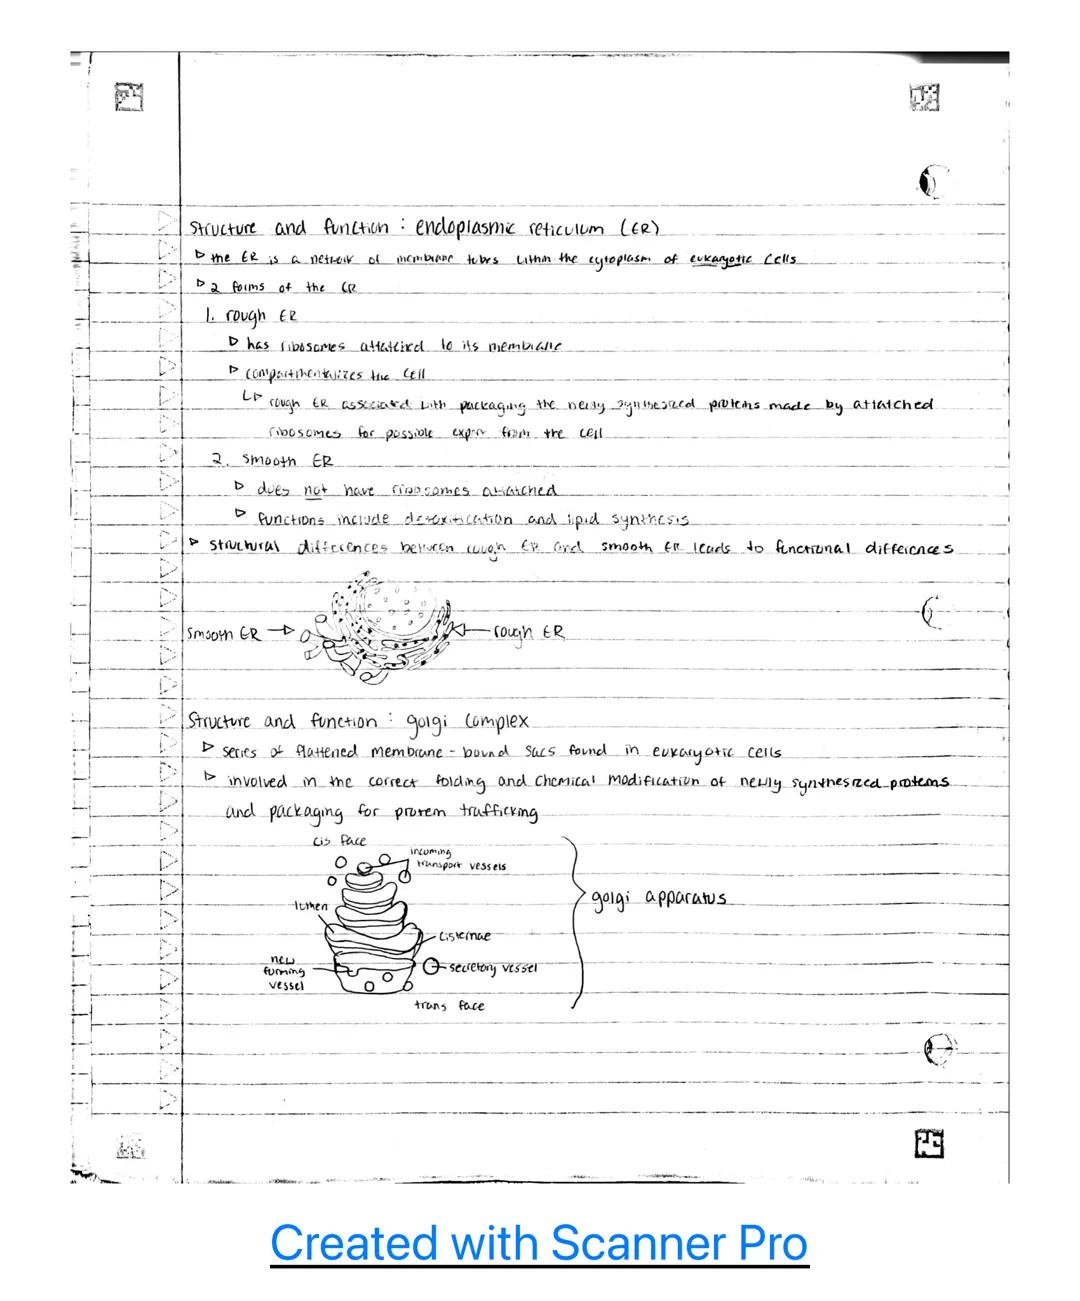 Structure and function : endoplasmic reticulum (ER)
the ER is a network of membrane tubes within the cytoplasm of eukaryotic cells
2 forms of the ER
1. rough ER
has ribosomes attatched to its membrane
compartmentalizes the cell
rough ER associated with packaging the newly synthesized proteins made by attatched
ribosomes for possible export from the cell
2. smooth ER
does not have ribosomes attatched
functions include detoxification and lipid synthesis
structural differences between rough ER and smooth ER leads to functional differences
smooth ER
rough ER
Structure and function : golgi complex
series of flattened membrane - bound sacs found in eukaryotic cells
involved in the correct folding and chemical modification of newly synthesized proteins
and packaging for protein trafficking
cis face
incoming
transport vessels
golgi apparatus
lumen
cisternae
new
forming
vessel
secretory vessel
trans face
Created with Scanner Pro